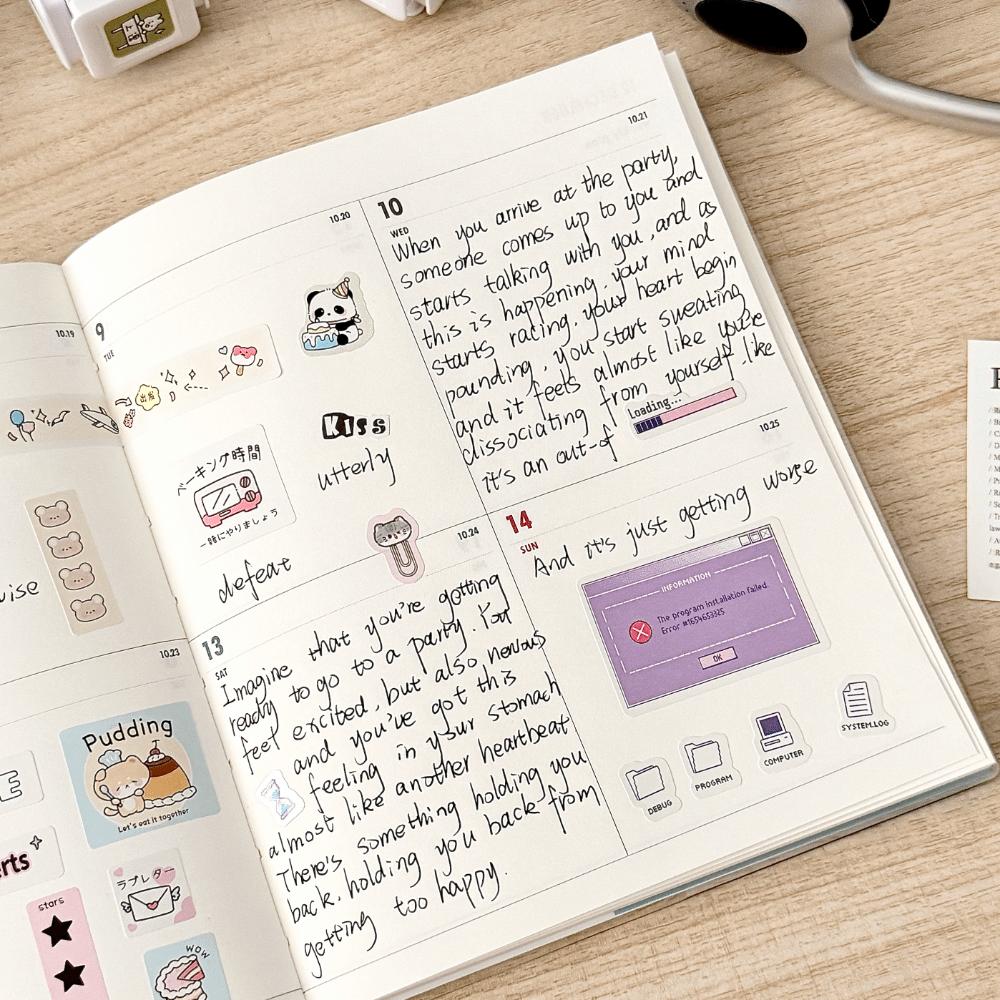 10.19
wise
10.23
Pudding
Let's eat it together
rts
ラブレター
stars
WOW
9
TUE
10.20
出发
ベーキング時間
一緒にやりましょう
Kiss
utterly
defeat
10
WED
10.21
When you arrive at the party,
someone comes up to you and
starts talking with you, and as
this is happening, your mind
starts rating. your heart begin
pounding, you start sweating
and it feels almost like you're
dissociating from yourself. like
it's an out-of
Loading...
13
SAT
10.24
Imagine that you're getting
ready to go to a party. You
feel excited, but also nervous
and you've got this
feeling in your stomach
almost like another heartbeat
There's something holding you
back, holding you back from
getting too happy.
14
SUN
10.25
And it's just getting worse
INFORMATION
The program installation failed.
Error #1654653325
OK
DEBUG
PROGRAM
COMPUTER
SYSTEM.LOG